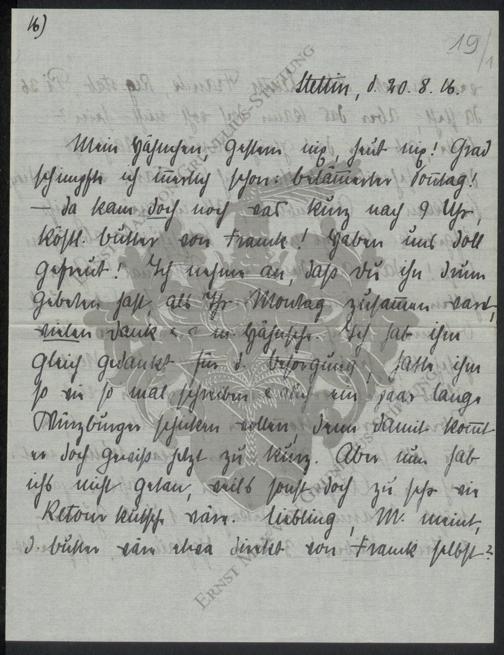 16)
19/1
Stettin, d. 20. 8. 16.
Mein Hähnchen, gestern nix, heut nix! Grad
schimpfte ich innerlich schon: belämmerter Sonntag!
– da kam doch noch was kurz nach 9 Uhr
köstl. butter von Franck! Haben uns doll
gefreut! Ich nehme an, daß Du ihn drum
gebeten hast als Ihr Montag zusammen wart,
vielen Dank m Hähnchen. Ich hab ihm
gleich gedankt für d. besorgung, hatte ihm
so wie so mal schreiben auch ein paar lange
Würzburger schicken wollen, denn damit kommt
er doch gewiss jetzt zu kurz. Aber nun hab
ichs nicht getan, weils sonst doch zu sehr wie
Retourkutsche wäre. Liebling, M. meint,
d. butter wäre etwa direkt von Franck selbst?
ERNST MELIUS-STIFTUNG